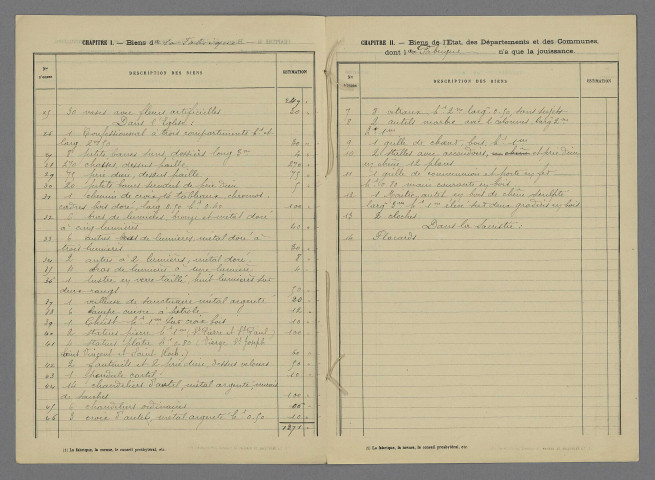 CHAPITRE I. — Biens de la Fabrique
Nos d'ordre DESCRIPTION DES BIENS ESTIMATION
249 "
25 30 vases avec fleurs artificielles 30 "
Dans l'Eglise:
26 1 Confessionnal à trois compartiments
larg 2m50 30 "
petits bancs sans dossiers long 2m
270 chaises dessus paille 270 "
29 75 prie dieu, dessus paille 75 "
30 20 petits bancs servant de prie dieu 5 "
31 1 chemin de croix, 14 tableaux chromos
cadres bois doré, larg 0.50 100 "
32 bras de lumières, bronze et métal doré
à cinq lumières
33 6 autres bras de lumières, métal doré à
trois lumières 30 "
34 2 autres à 2 lumières, métal doré 8 "
4 bras de lumière à une lumière
36 1 lustre, en verre taillé huit lumières sur
deux rangs
37 1 veilleuse de sanctuaire métal argenté 20 "
38 6 lampes cuivre à pétrole
39 1 Christ h. 1m sur croix bois 10 "
40 2 Statues pierre h. 1m, St Pierre et St Paul 100 "
41 4 Statues plâtre h. 0.80, Vierge St Joseph
Saint Vincent et Saint
42 2 fauteuils et 2 prie dieu, dessus velours
43 1 Pendule cartel
44 14 chandeliers d'autel, métal argenté, munis
de souches 100 "
45 6 chandeliers ordinaires
46 3 croix d'autel, métal argenté h. 0.50 10 "
1271 "
(1) La fabrique, la mense, le conseil presbytéral, etc.
CHAPITRE II. — Biens de l'Etat, des Départements et des Communes,
dont la Fabrique n'a que la jouissance.
Nos d'ordre DESCRIPTION DES BIENS ESTIMATION
7 8 vitraux h. 2m larg. 0.50 sans sujets
8 2 autels marbre avec 2 colonnes larg 2m
h. 1m
9 1 grille de chœur bois, h. 1m
10 2 Stalles avec accoudoirs, et prie dieu
en chêne et places
11 1 grille de communion et porte en fer
h. 0.80 main courante en bois
12 1 Maître, autel en bois de chêne sculpté
larg 2m h. 1m élevé sur deux gradins en bois
13 2 cloches
Dans la Sacristie:
14 Placards
(1) La fabrique, la mense, le conseil presbytéral, etc.